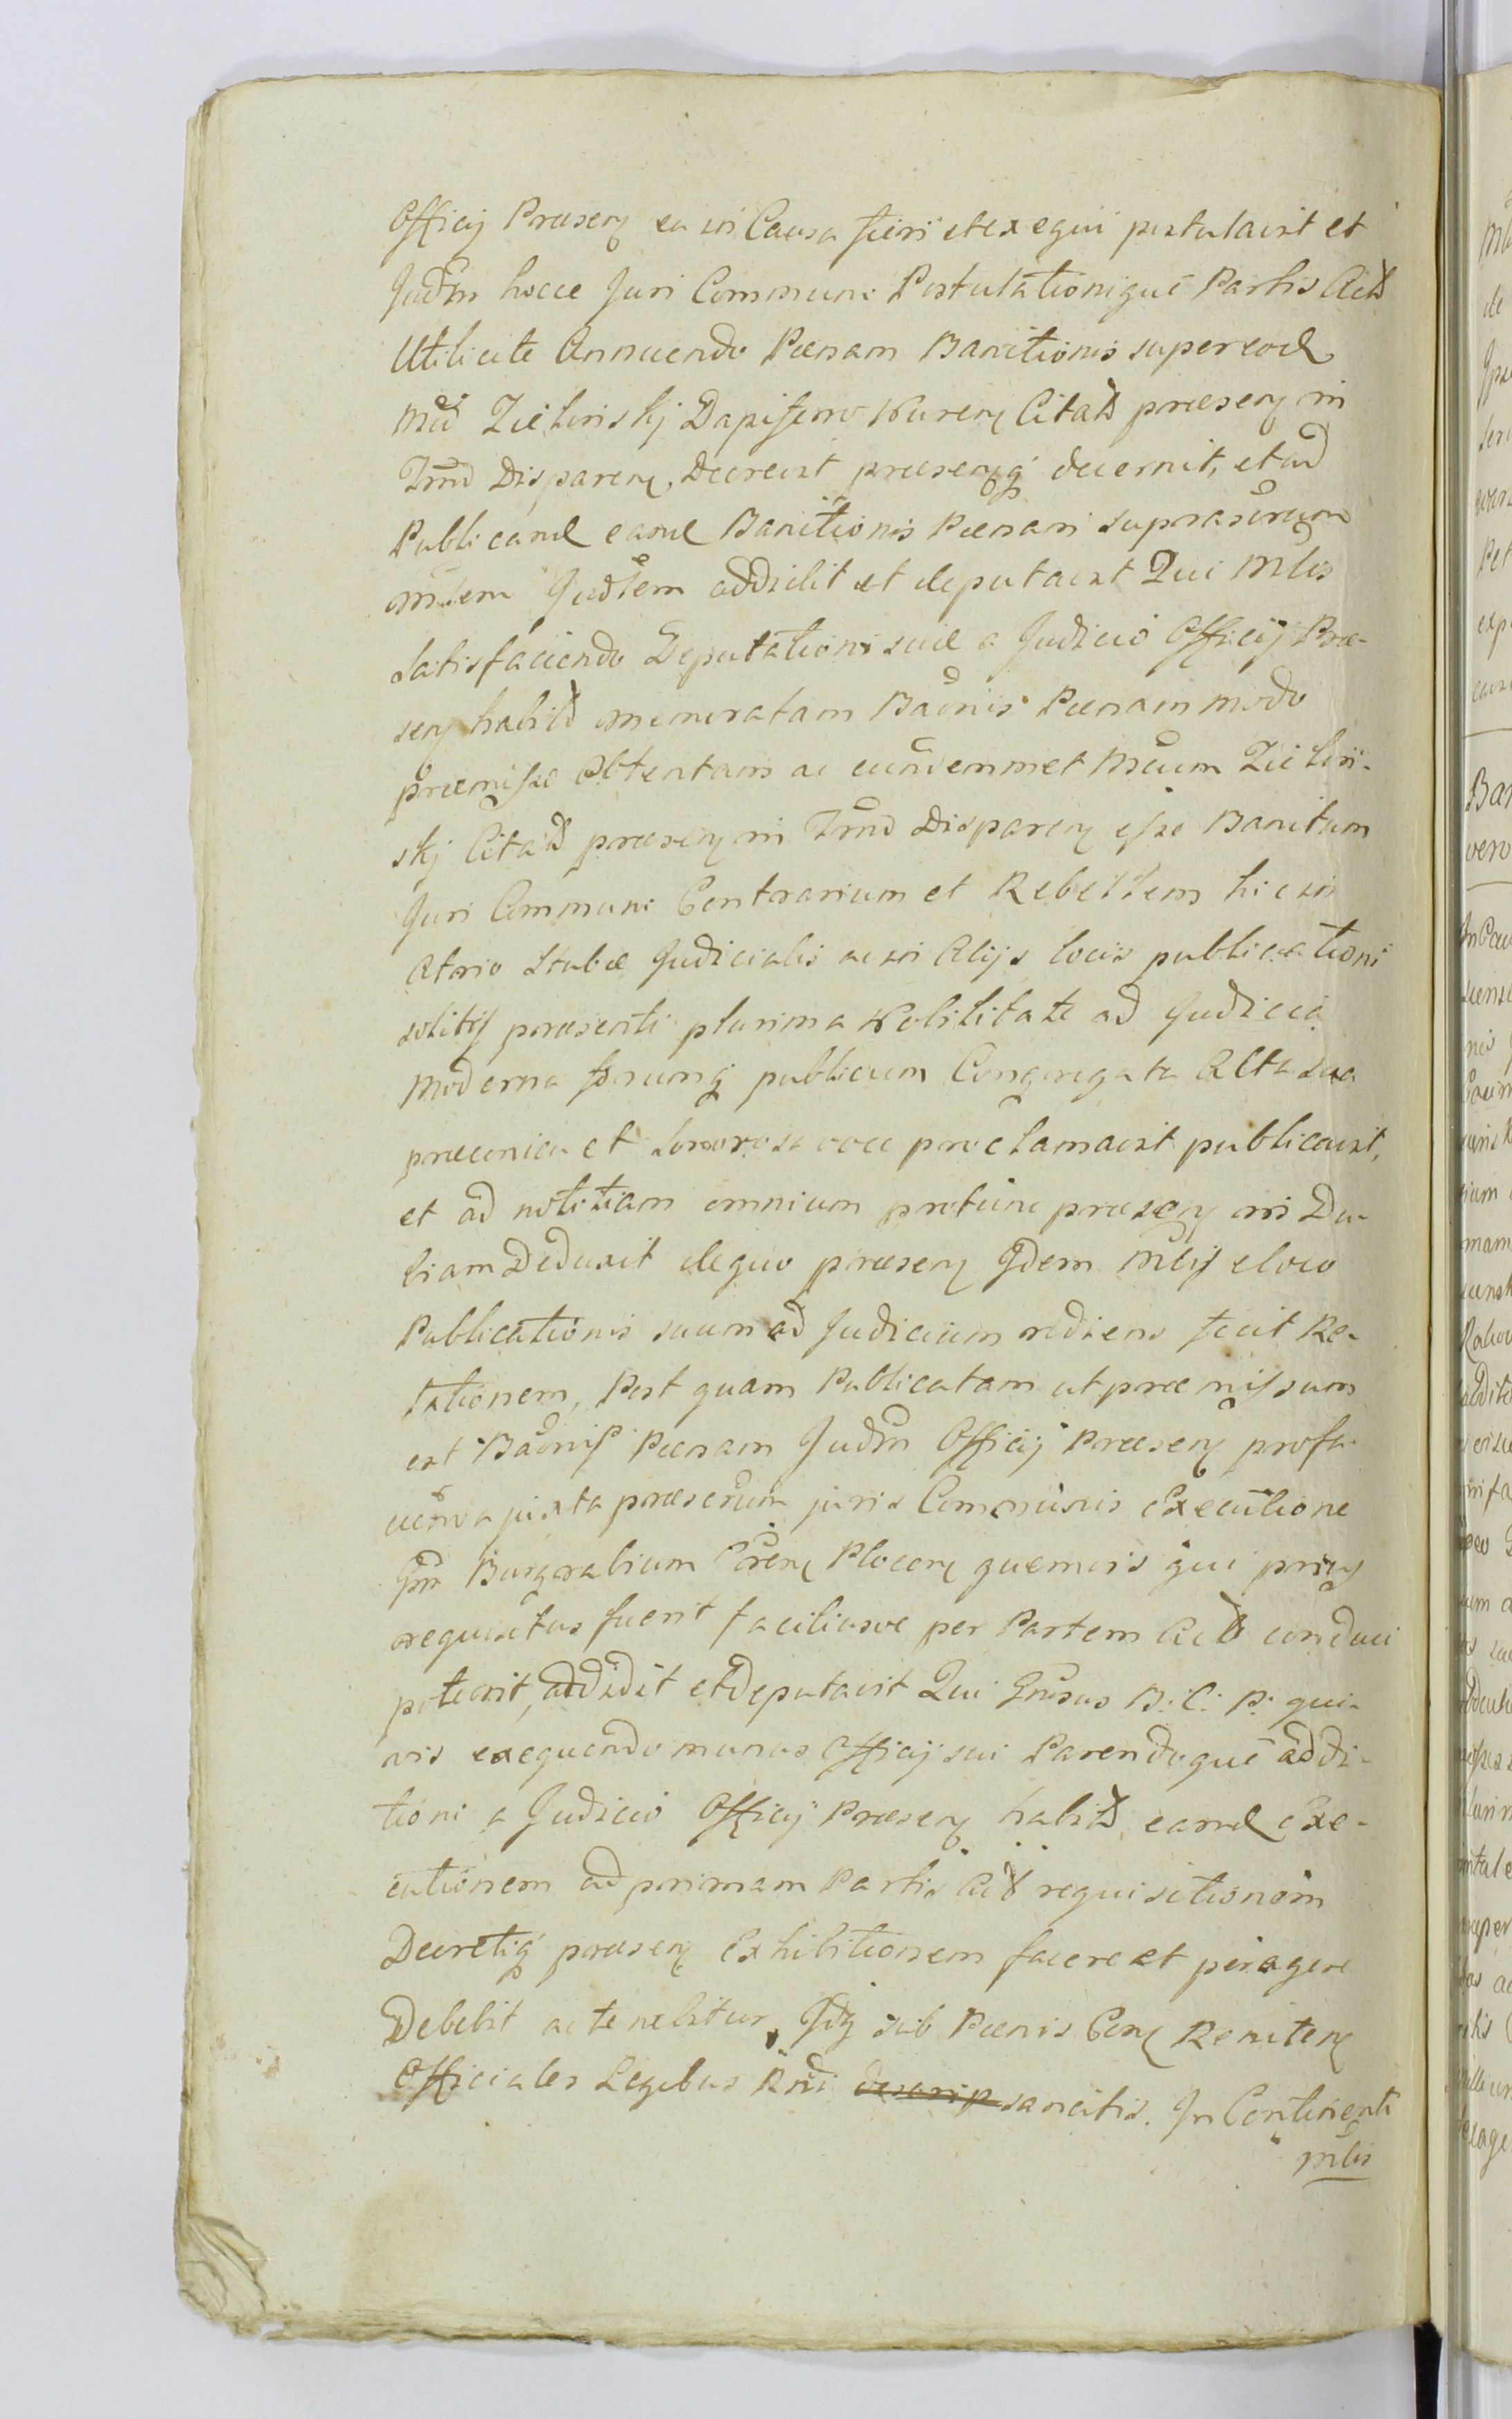 Officij Præsen ea in Causa fieri et exequi postulavit et
Judm hocce Juri Communi Postulationique Partis Act
Utilicite Annuendo Pœnam Banitionis super eod
Mco Zielinskj Dapifero Wuren Citato præsen in
Tmno Disparen, Decrevit præsenq decernit, et ad
Publicand eand Banitionis Pœnam suprascrum
Mlem Judlem addidit et deputavit Qui Mlis
satisfaciendo Deputationi suæ a Judicio Officij Præ-
sen habit memoratam Baonis Pœnam modo
præmisso Obtentam ac eundemmet Mcum Zielin-
skj Citat præsen in Tmno Disparen esse Banitum
Juri Communi Contrarium et Rebellem hic in
Atrio Stubæ Judicialis ac in Alijs locis publicationi
solitis præsenti plurima Nobilitate ad Judicia
moderna forumq publicum Congregata Alta sua
præconica et sonorosa voce proclamavit publicavit,
et ad notitiam omnium protunc præsen in Du-
biam Deduxit de quo præsen Idem Mlis e loco
Publicationis suum ad Judicium rediens fecit Re-
lationem, Post quam Publicatam ut præmissum
est Baonis Pœnam Judm Officij Præsen pro fa-
cienda juxta præscrum juris Communis Executione
Gm Burgrabium Cren Plocen quemvis qui prius
requisitus fuerit faciliusve per Partem Act conduci
poterit, addidit et deputavit Qui Gnrsus B: C: P: qui-
vis exequendo munus Officij sui Parendoque addi-
tioni a Judicio Officij Præsen habit, eand Exe-
cutionem ad primam Partis Act requisitionem
Decretiq præsen Exhibitionem facere et peragere
Debebit ac tenebitur, Idq sub Pœnis Con Reniten
Officiales Legibus Rni descrip sancitis. In Continenti
Mlis